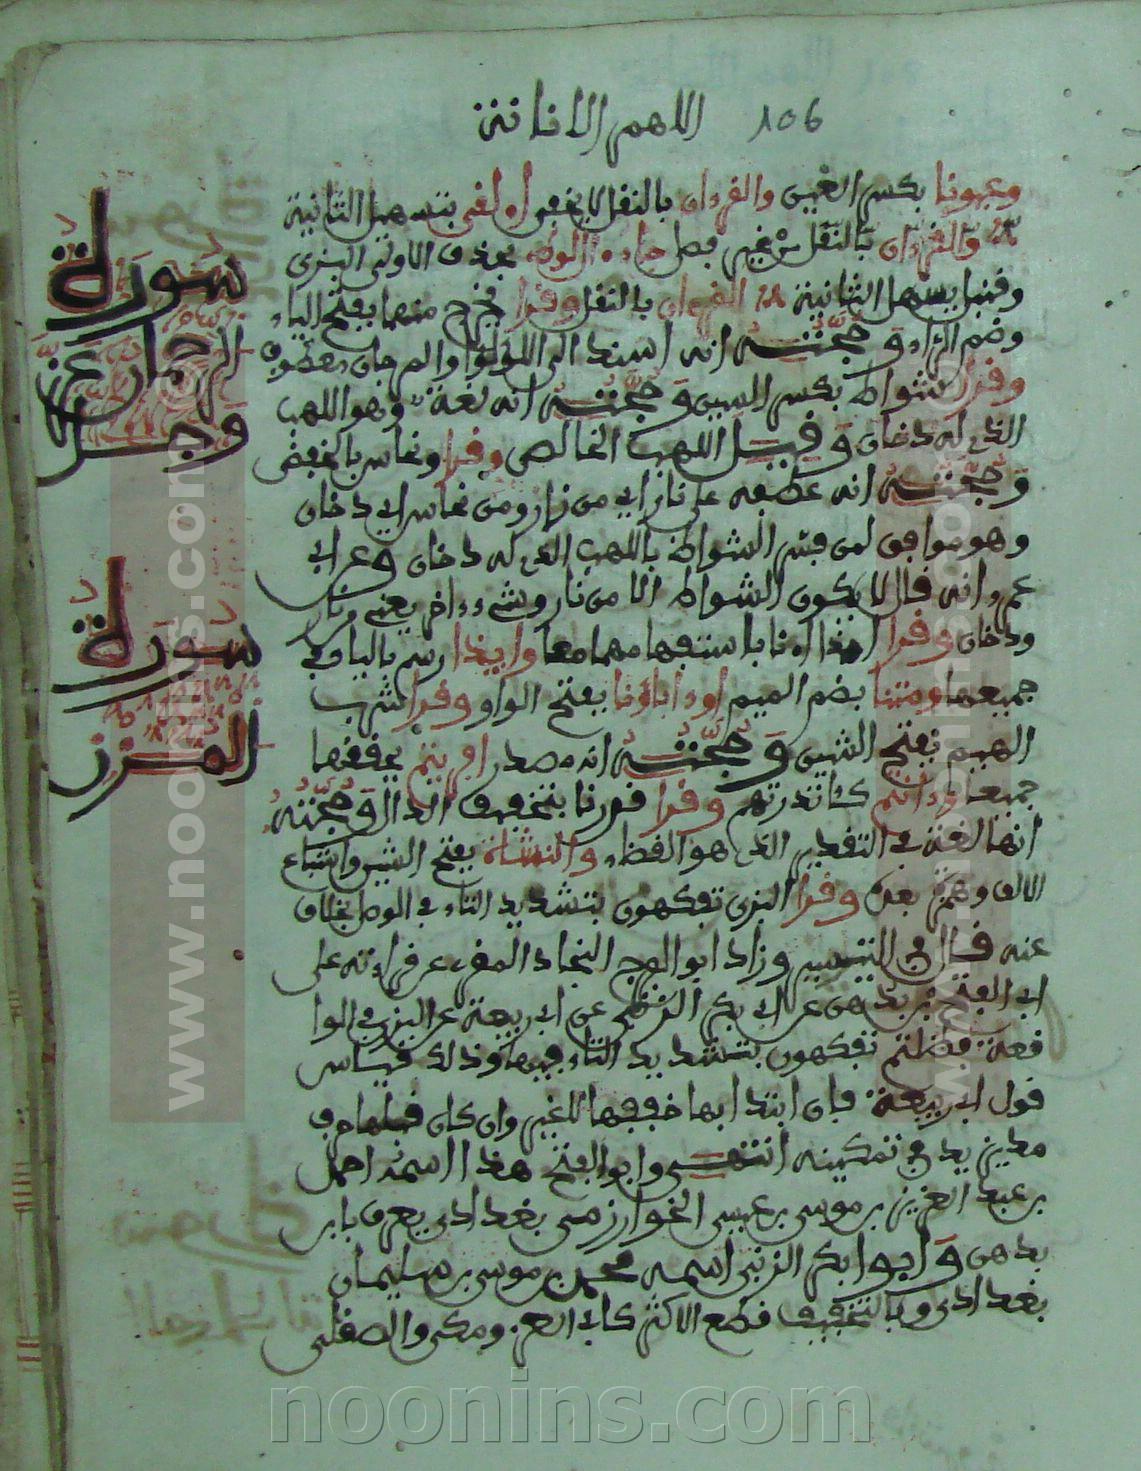 106
وعيونا بكسر العين والقرءان بالنقل لا يخفى اولقي بتسهيل الثانية
والقرءان بالنقل من غير فصل جاء الوط بحذف الاولى البزي
وقنبل يسهل الثانية القرءان بالنقل وقرا يخرج منهما بفتح الياء
وضم الراء وحجته انه اسند الى اللؤلؤ والمرجان معطوف
وقرا شواظ بكسر الشين وحجته انه لغة وهو اللهب
الذي له دخان وقيل اللهب الخالص وقرا ونحاس بالخفض
وحجته انه عطفه على نار اي من نار ومن نحاس اي دخان
وهو موافق لمن فسر الشواظ باللهب الذي له دخان وعن ابي
عمرو انه قال لا يكون الشواظ الا من نار وشيء ءاخر يعني من نار
ودخان وقرا ائذا ائنا باستفهامهما معا وايذا رسم بالياء في
جميعها ومتنا بضم الميم اوءاباؤنا بفتح الواو وقرا شرب
الهيم بفتح الشين وحجته انه مصدر افريتم يحققها
جميعا ءانتم كئانذرتهم وقرا قدرنا بتخفيف الدال وحجته
انها لغة في التقدير الذي هو القضاء والنشاة بفتح الشين واشباع
الالف وهمزة بعد وقرا البزي تفكهون بتشديد التاء في الوصل بخلاف
عنه قال في التيسير وزاد ابو الفرج النجاد المقري عن قراءته على
ابي الفتح بن بدهن عن ابي بكر الزينبي عن ابي ربيعة عن البزي في الوا
قعة فظلتم تفكهون بتشديد التاء فيهما وذلك قياس
قول ابي ربيعة فان ابتدا بها خففها لا غير وان كان قبلها حرف
مد زيد في تمكينه انتهى وابو الفتح هذا اسمه احمد
بن عبد العزيز بن موسى بن عيسى الخوارزمي بغدادي يعرف بابن
بدهن وابو بكر الزينبي اسمه محمد بن موسى بن سليمان
بغدادي وبالتخفيف قطع الاكثر كابي العز ومكي والصقلي
سورة
الرحمان عز
وجل
سورة
المزن